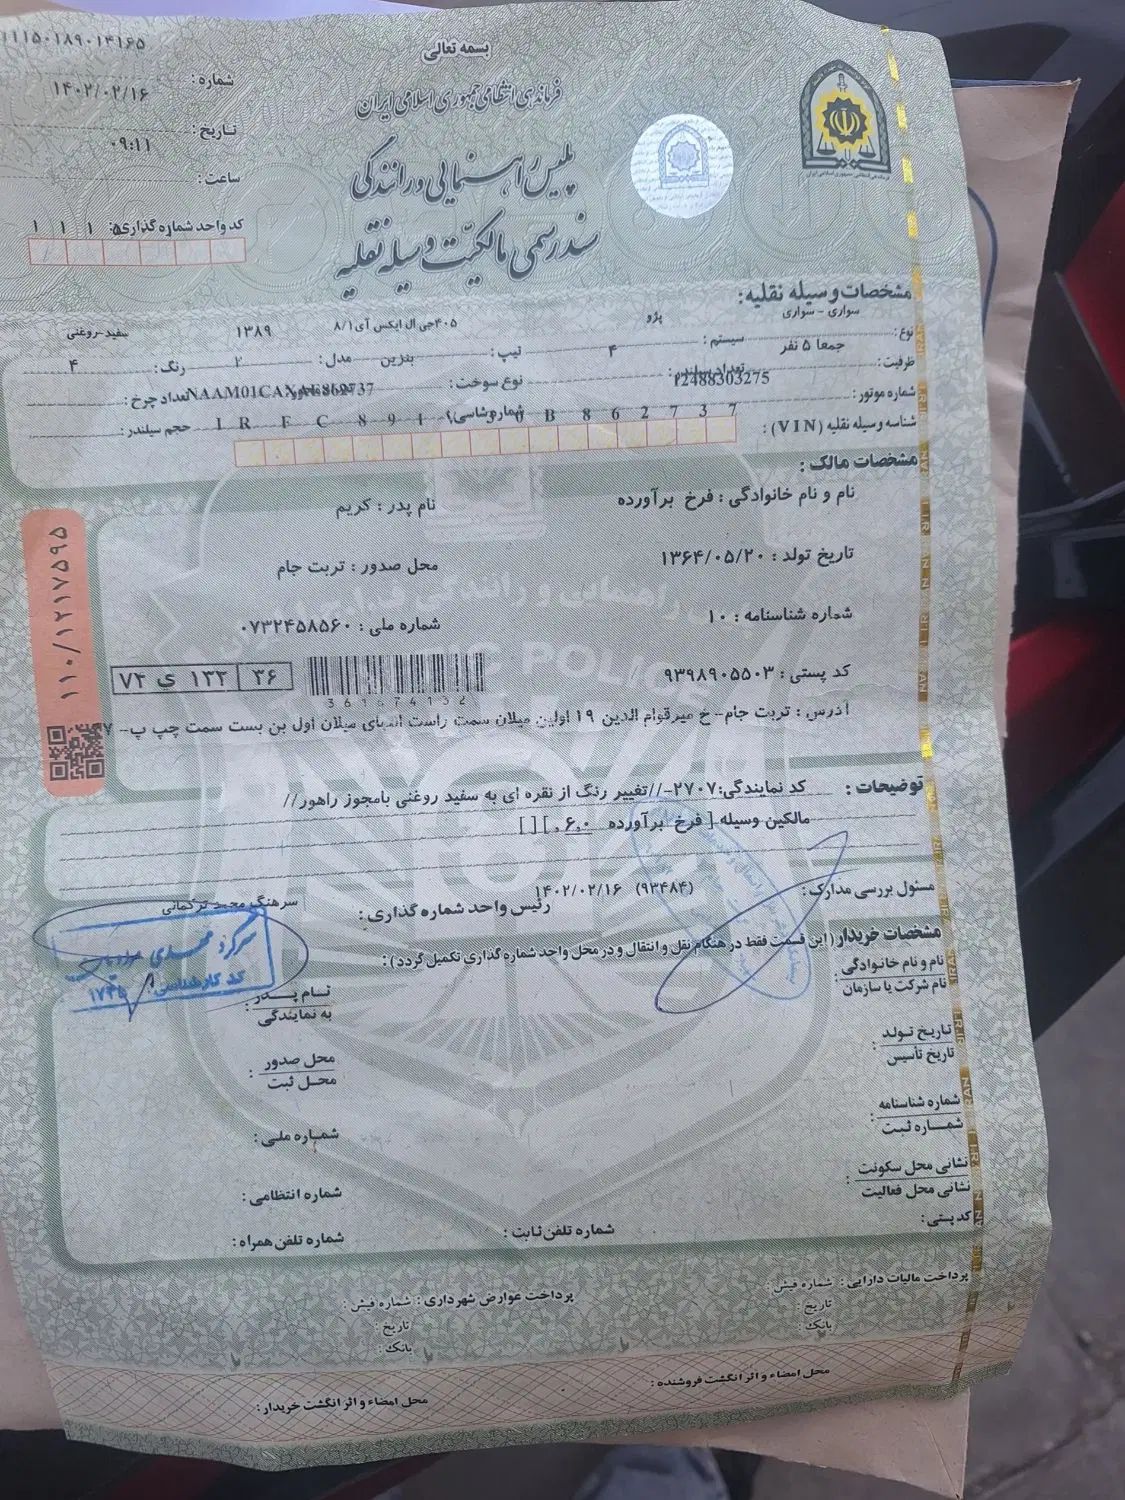 بسمه تعالی
فرماندهی انتظامی جمهوری اسلامی ایران
پلیس راهنمایی و رانندگی
سند رسمی مالکیت وسیله نقلیه
۱۱۱۵۰۱۸۹۰۱۴۱۶۵
شماره :
۱۴۰۲/۰۲/۱۶
تاریخ :
۰۹:۱۱
ساعت :
کد واحد شماره گذاری: ۵ ۱ ۱ ۱
مشخصات وسیله نقلیه:
سواری - سواری پژو ۴۰۵جی ال ایکس آی۱/۸ ۱۳۸۹ سفید-روغنی
نوع: سیستم : تیپ : مدل : رنگ :
جمعا ۵ نفر ۴ بنزین ۲ ۴
ظرفیت: تعداد سیلندر: نوع سوخت : تعداد چرخ :
12488303275 NAAM01CA
شماره موتور: شماره شاسی: حجم سیلندر :
شناسه وسیله نقلیه (VIN) : I R F C 8 9 1 B 8 6 2 7 3 7
مشخصات مالک :
نام و نام خانوادگی : فرخ برآورده نام پدر : کریم
تاریخ تولد : ۱۳۶۴/۰۵/۲۰ محل صدور : تربت جام
شماره شناسنامه : ۱۰ شماره ملی : ۰۷۳۲۴۵۸۵۶۰
کد پستی : ۹۳۹۸۹۰۵۵۰۳
۳۶ ۱۳۲ ی ۷۴
361674132
آدرس : تربت جام- خ میرقوام الدین ۱۹ اولین میلان سمت راست انتهای میلان اول بن بست سمت چپ پ- ۷
۱۱۰/۱۲۱۷۵۹۵
توضیحات : کد نمایندگی:۲۷۰۷-//تغییر رنگ از نقره ای به سفید روغنی بامجوز راهور//
مالکین وسیله [ فرخ برآورده ۶,۰, ] [ ]
مسئول بررسی مدارک : (۹۳۴۸۴) ۱۴۰۲/۰۲/۱۶
رئیس واحد شماره گذاری : سرهنگ محمد ترکمانی
کد کارشناسی:
مشخصات خریدار ( این قسمت فقط در هنگام نقل و انتقال و در محل واحد شماره گذاری تکمیل گردد ) :
نام و نام خانوادگی :
نام شرکت یا سازمان
نام پدر :
به نمایندگی
تاریخ تولد :
تاریخ تأسیس
محل صدور :
محل ثبت
شماره شناسنامه :
شماره ثبت
شماره ملی :
نشانی محل سکونت :
نشانی محل فعالیت
شماره انتظامی :
کد پستی : شماره تلفن ثابت : شماره تلفن همراه :
پرداخت مالیات دارایی : شماره فیش : پرداخت عوارض شهرداری : شماره فیش :
تاریخ : تاریخ :
بانک : بانک :
محل امضاء و اثر انگشت فروشنده : محل امضاء و اثر انگشت خریدار :